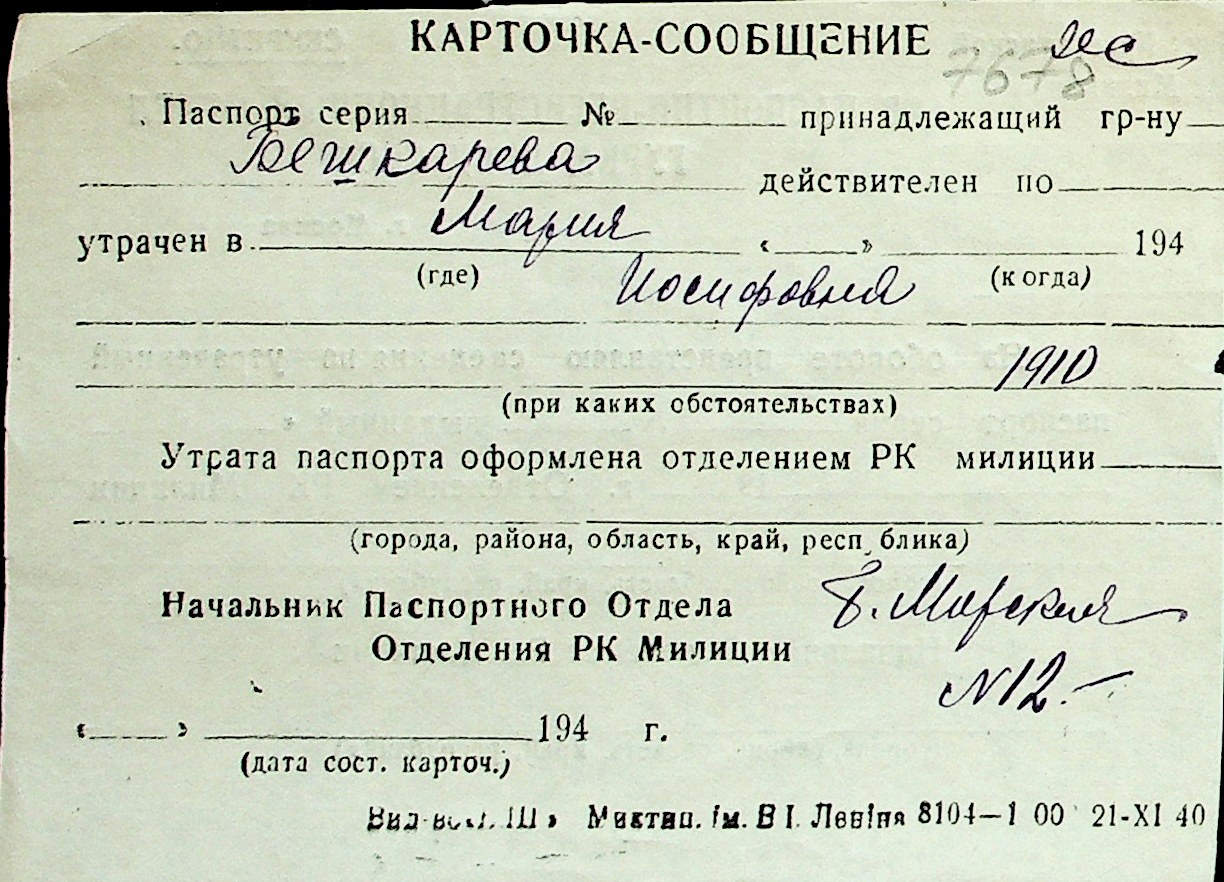 КАРТОЧКА-СООБЩЕНИЕ
7678
Паспорт серия № принадлежащий гр-ну
Бешкарева
действителен по
Мария
утрачен в « » 194
(где) Иосифовна (когда)
1910
(при каких обстоятельствах)
Утрата паспорта оформлена отделением РК милиции
(города, района, область, край, респ блика)
Начальник Паспортного Отдела Б. Морская
Отделения РК Милиции
N12.-
« » 194 г.
(дата сост. карточ.)
ім. В І. Леніна 8104—1 00 21-XI 40